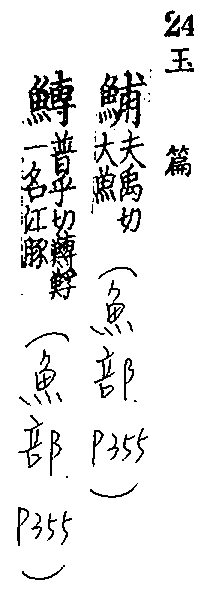 24 玉 篇
鯆 夫禹切
大魚 (魚部. P355)
𩺷 普乎切𩺷䱐
一名江豚 (魚部. P355)